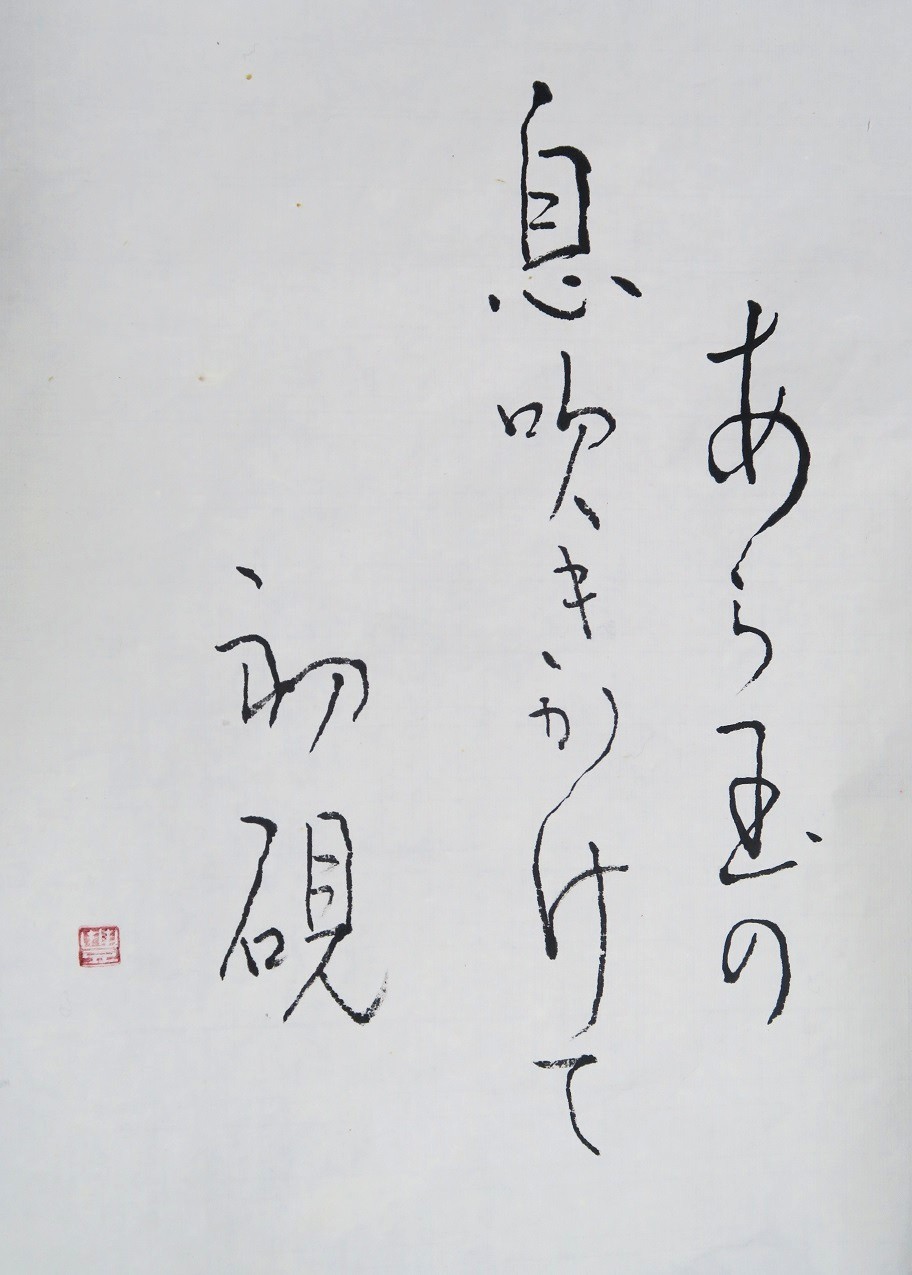 あら玉の
息吹きかけて
初硯